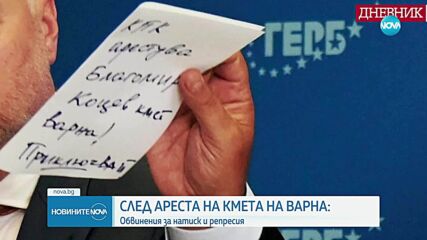 ДНЕВНИК
NOVA
ГЕРБ
КПК
арестува
Благомир
Коцев кмет
Варна!
Приключвай
nova.bg
НОВИНИТЕ NOVA
СЛЕД АРЕСТА НА КМЕТА НА ВАРНА:
Обвинения за натиск и репресия